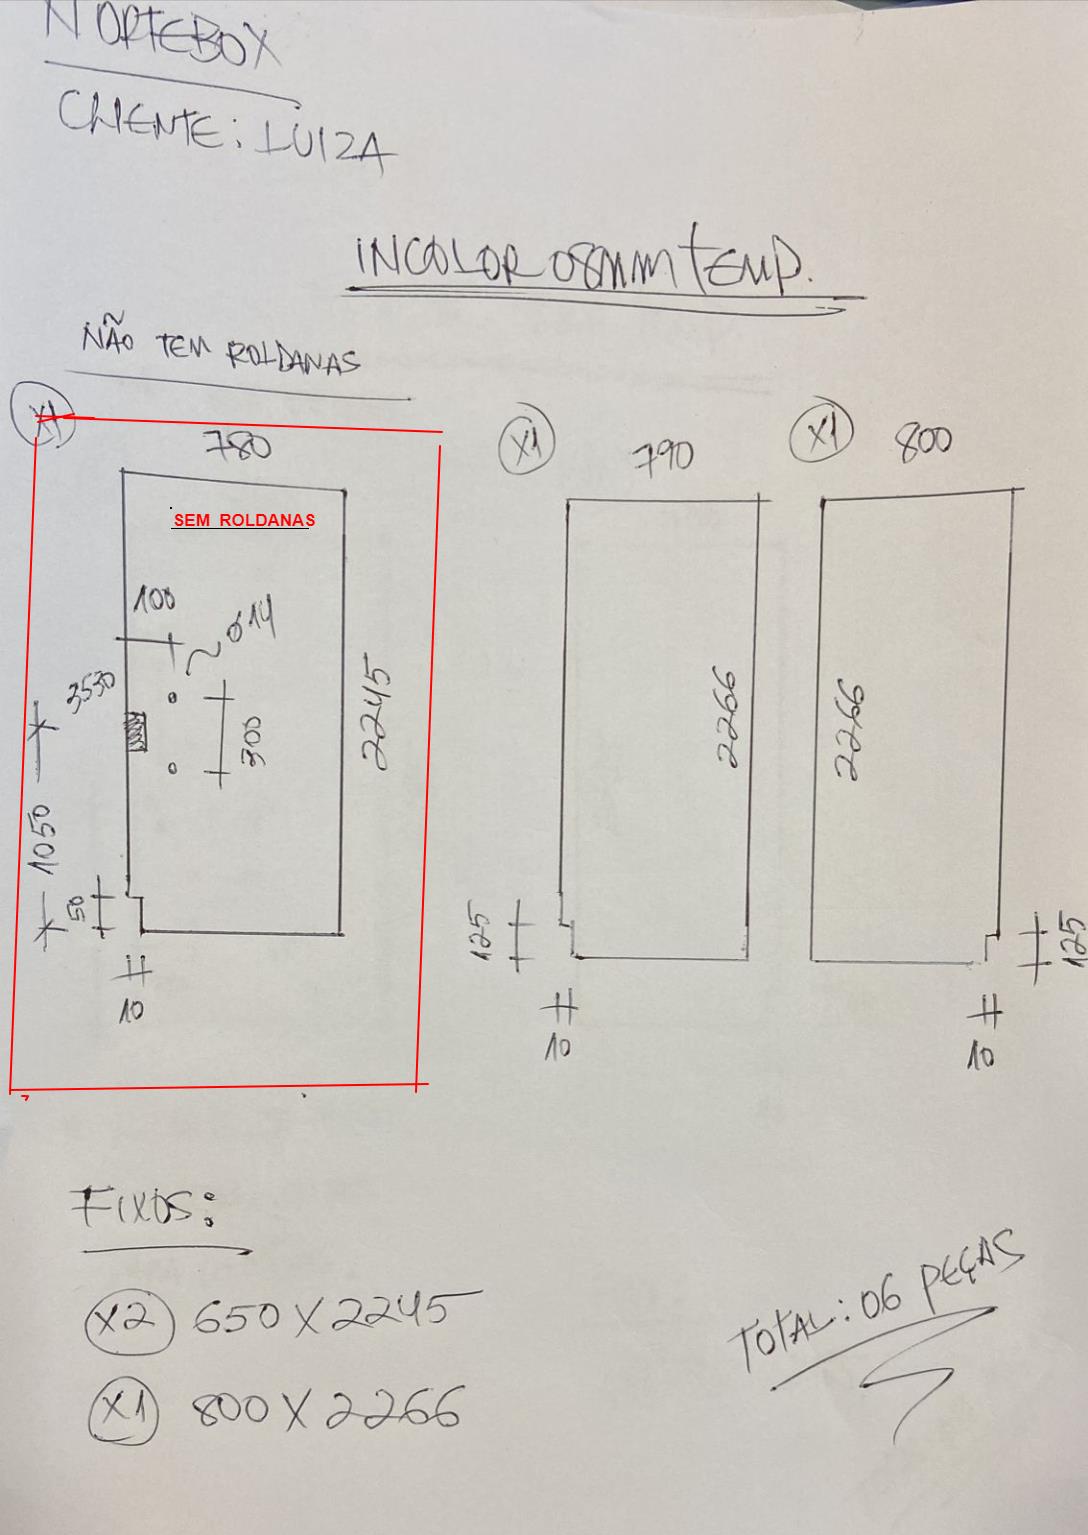 NORTEBOX
CLIENTE: LUIZA
INCOLOR 08mm TEMP.
NÃO TEM ROLDANAS
X1
780
SEM ROLDANAS
100
Ø14
3530
300
2245
1050
50
10
X1
790
2266
125
10
X1
800
2266
125
10
FIXOS:
X2 650 X 2245
X1 800 X 2266
TOTAL: 06 PEÇAS